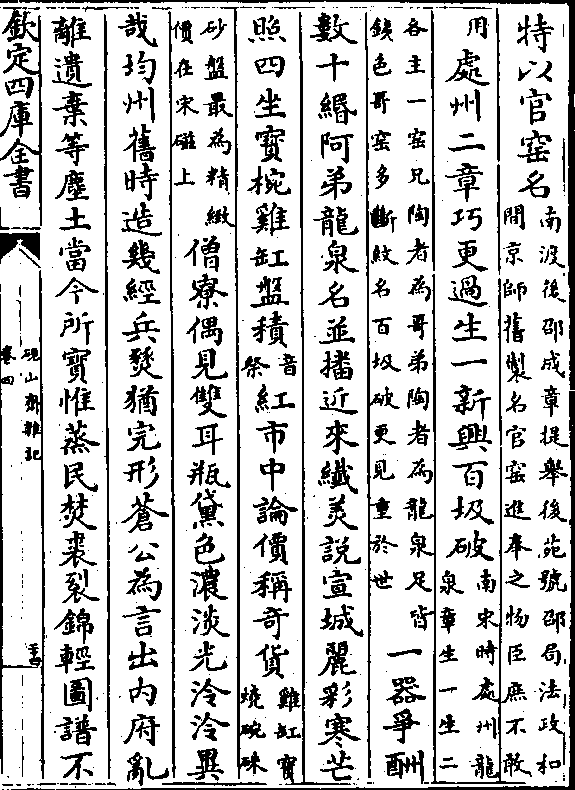 特以官窑名南渡後邵成章提舉後苑號邵局法政和間京師舊製名官窑進奉之物臣庶不敢
用處州二章巧更過生一新興百圾破南宋時處州龍泉章生一生二
各主一窑兄陶者為哥弟陶者為龍泉足皆鐵色哥窑多斷紋名百圾破更見重於世一器爭酬
數十緡阿弟龍泉名並播近來纖美說宣城麗彩寒芒
照四坐寶椀雞缸盤積音祭紅市中論價稱奇貨雞缸寶燒碗硃
砂盤最為精緻價在宋磁上僧寮偶見雙耳瓶黛色濃淡光泠泠異
哉均州舊時造幾經兵燹猶完形蒼公為言出內府亂
離遺棄等塵土當今所寶惟蒸民焚裘裂錦輕圖譜不
欽定四庫全書
硯山齋雜記
卷四